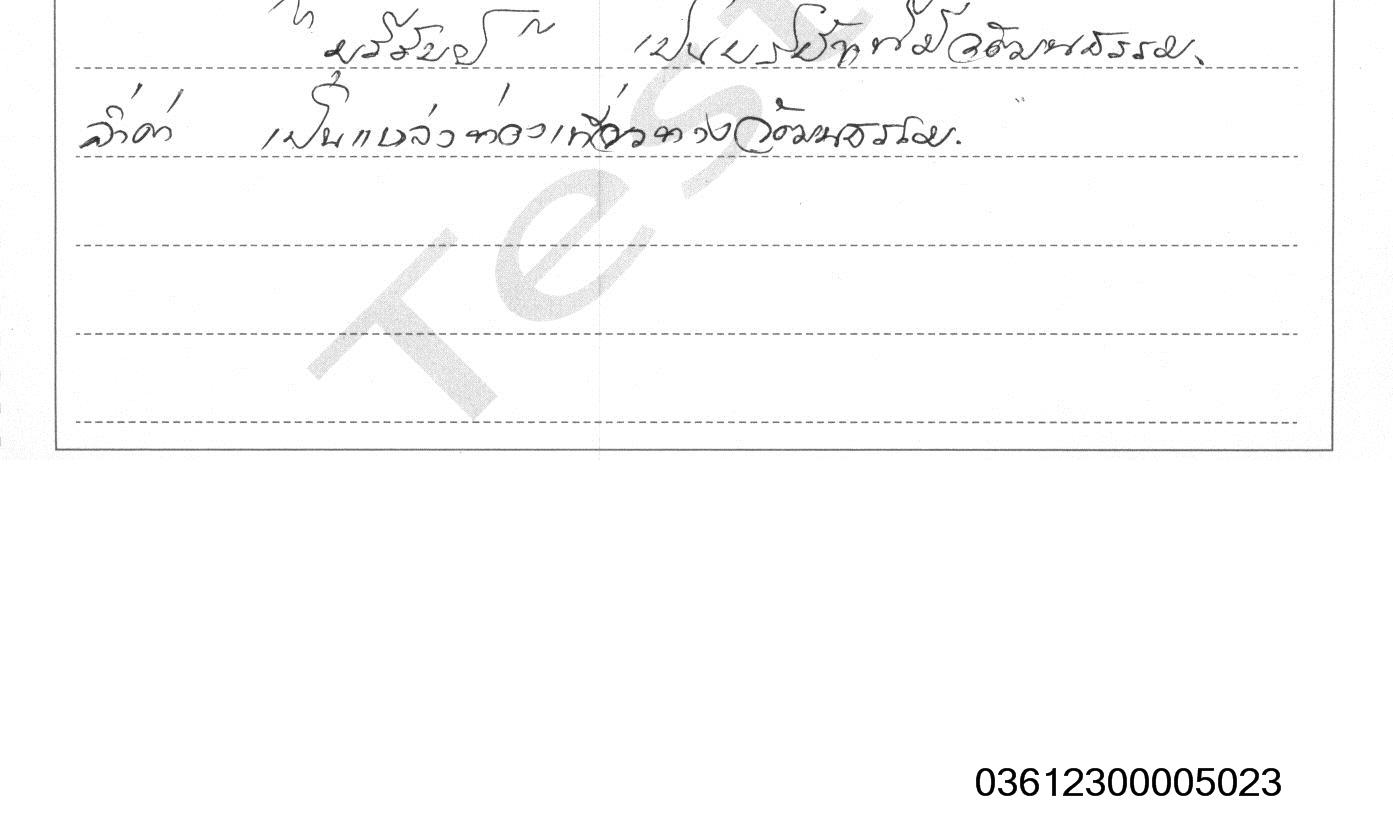 เป็นบริษัทที่มีวัฒนธรรม
ล้ำค่า เป็นแหล่งท่องเที่ยวทางวัฒนธรรม.
Test
03612300005023